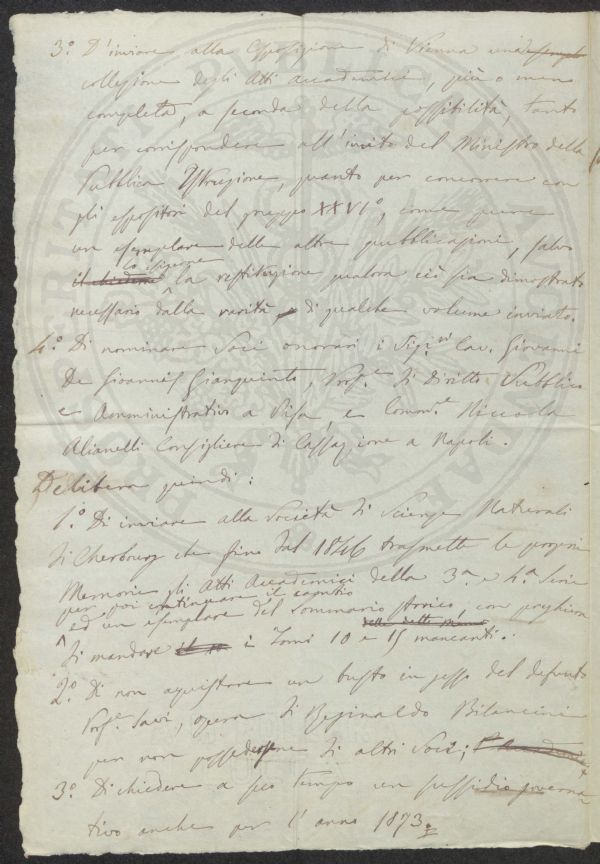 3.° D'inviare alla Esposizione di Vienna una
collezione degli Atti accademici, più o meno
completa, a seconda della possibilità, tanto
per corrispondere all'invito del Ministro della
Pubblica Istruzione, quanto per concorrere con
gli espositori del gruppo XXVI°, come pure
un esemplare delle altre pubblicazioni, salvo
la restituzione qualora ciò sia dimostrato
necessario dalla rarità di qualche volume inviato.
4.° Di nominare Soci onorari i Sig.ri Cav. Giovanni
De Gioannis Gianquinto, Prof.e di Diritto Pubblico
e Amministrativo a Pisa, e Comm.e Niccola
Alianelli Consigliere di Cassazione a Napoli.
Delibera quindi:
1.° Di inviare alla Società di Scienze Naturali
di Cherbourg che fino dal 1846 trasmette le proprie
Memorie gli Atti Accademici della 3.a e 4.a Serie
per poi continuare il cambio
ed un esemplare del Sommario Storico, con preghiera
di mandare i Tomi 10 e 15 mancanti.
2.° Di non acquistare un busto in gesso del defunto
Prof.e Savi, opera di Reginaldo Bilancini
per non possederne di altri Soci;
3.° Di chiedere a suo tempo un sussidio governa
tivo anche per l'anno 1873.